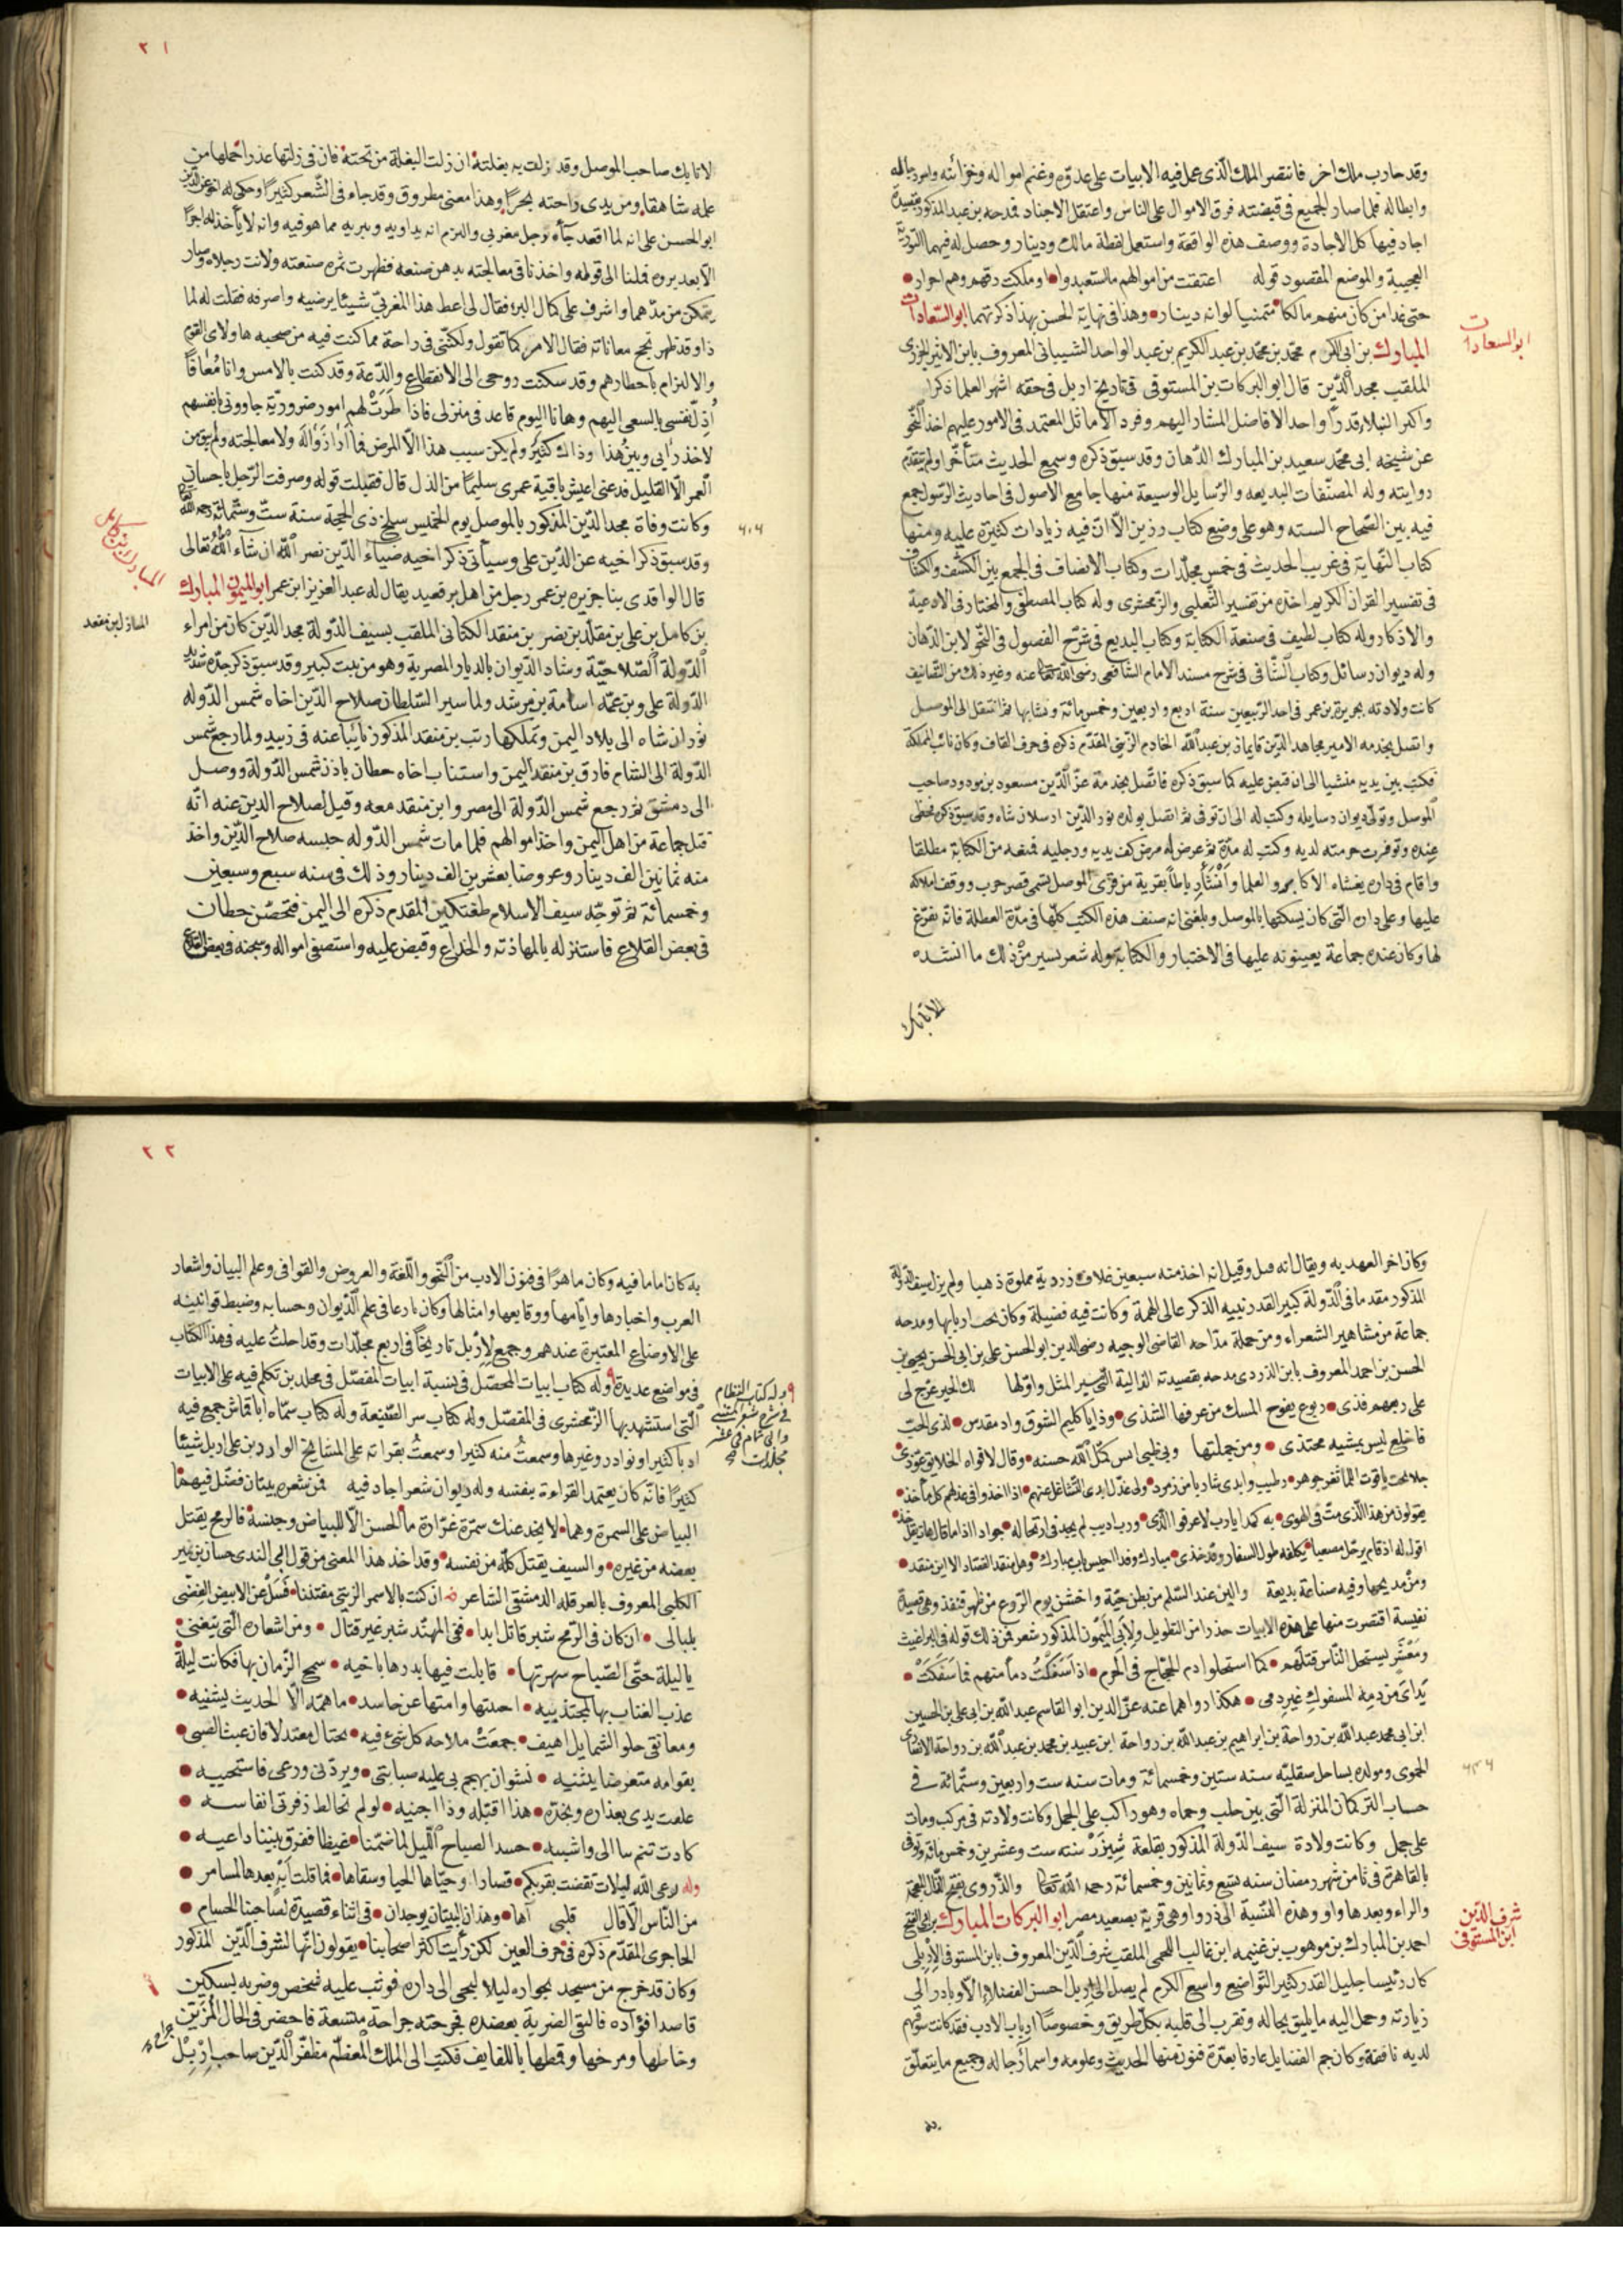 وقد حارب ملك اخر فانتصر الملك الذى عمل فيه الابيات على عدوه وغنم امواله وخزائنه واسر رجاله
وابطاله فلما صار الجميع فى قبضته فرق الاموال على الناس واعتقل الاجناد فمدحه بن عبد المذكور بقصيدة
اجاد فيها كل الاجادة ووصف هذه الواقعة واستعمل لفظة مالك ودينار وحصل له فيهما التورية
العجيبة والموضع المقصود قوله اعتقت من اموالهم ما استعبدوا وملكت رقهم وهم احرار
حتى غدا من كان منهم مالكا متمنيا لو انه دينار وهذا فى نهاية الحسن بهذا ذكرتهما ابو السعادات
المبارك بن ابى الكرم محمد بن محمد بن عبد الكريم بن عبد الواحد الشيبانى المعروف بابن الاثير الجزرى
الملقب مجد الدين قال ابو البركات بن المستوفى فى تاريخ اربل فى حقه اشهر العلما ذكرا
واكبر النبلا قدرا واحد الافاضل المشار اليهم وفرد الاماثل المعتمد فى الامور عليهم اخذ النحو
عن شيخه ابى محمد سعيد بن المبارك الدهان وقد سبق ذكره وسمع الحديث متأخرا ولم تتقدم
روايته وله المصنفات البديعه والرسايل الوسيعة منها جامع الاصول فى احاديث الرسول جمع
فيه بين الصحاح السته وهو على وضع كتاب رزين الا ان فيه زيادات كثيرة عليه ومنها
كتاب النهاية فى غريب الحديث فى خمس مجلدات وكتاب الانصاف فى الجمع بين الكشف والكشاف
فى تفسير القران الكريم اخذه من تفسير الثعلبى والزمخشرى وله كتاب المصطفى والمختار فى الادعية
والاذكار وله كتاب لطيف فى صنعة الكتابة وكتاب البديع فى شرح الفصول فى النحو لابن الدهان
وله ديوان رسائل وكتاب الشافى فى شرح مسند الامام الشافعى رضى الله عنه وغير ذلك من التصانيف
كانت ولادته بجزيرة بن عمر فى احد الربيعين سنة اربع واربعين وخمس مائة ونشا بها ثم انتقل الى الموصل
واتصل بخدمه الامير مجاهد الدين قايماز بن عبد الله الخادم الزينى المقدم ذكره فى حرف القاف وكان نائب المملكة
فكتب بين يديه منشيا الى ان قبض عليه كما سبق ذكره فاتصل بخدمة عز الدين مسعود بن مودود صاحب
الموصل وتولى ديوان رسايله وكتب له الى ان توفى ثم اتصل بولده نور الدين ارسلان شاه وقد سبق ذكره فحظى
عنده وتوفرت حرمته لديه وكتب له مدة ثم عرض له مرض كف يديه ورجليه فمنعه من الكتابة مطلقا
واقام فى داره يغشاه الاكابر والعلما وأنشأ رباطا بقرية من قرى الموصل تسمى قصر حرب ووقف املاكه
عليها وعلى داره التى كان يسكنها بالموصل وبلغنى انه صنف هذه الكتب كلها فى مدة العطلة فانه تفرغ
لها وكان عنده جماعة يعينونه عليها فى الاختيار والكتابة وله شعر يسير من ذلك ما انشده
الاتابك
ابو السعادات
٢١
لاتابك صاحب الموصل وقد زلت به بغلته ان زلت البغلة من تحته فان فى زلتها عذرا حملها من
علمه شاهقا ومن يدى راحته بحرا وهذا معنى مطروق وقد جاء فى الشعر كثيرا وحكى له اخو عز الدين
ابو الحسن على انه لما اقعد جآءه رجل مغربى والتزم انه يداويه ويبريه مما هو فيه وانه لا يأخذ له اجرا
الا بعد بروه فملنا الى قوله واخذنا فى معالجته بدهن صنعه فظهرت ثمره صنعته ولانت رجلاه وصار
يتمكن من مدهما واشرف على كمال البرء فقال لى اعط هذا المغربى شيئا يرضيه واصرفه فقلت له لما
ذا وقد ظهر نجح معاناته فقال الامر كما تقول ولكننى فى راحة مما كنت فيه من صحبه هاولاى القوم
والالتزام باخطارهم وقد سكنت روحى الى الانقطاع والدعة وقد كنت بالامس وانا معافا
أذل نفسى بالسعى اليهم وها انا اليوم قاعد فى منزلى فاذا طرت لهم امور ضرورية جاوونى بانفسهم
لاخذ رأيى وبين هذا وذاك كثير ولم يكن سبب هذا الا المرض فما أرا زواله ولا معالجته ولم يبق من
العمر الا القليل فدعنى اعيش باقية عمرى سليما من الذل قال فقبلت قوله وصرفت الرجل باحسان
وكانت وفاة مجد الدين المذكور بالموصل يوم الخميس سلخ ذى الحجة سنة ست وستمائة رحمه الله
وقد سبق ذكر اخيه عز الدين على وسيأتى ذكر اخيه ضياء الدين نصر الله ان شآء الله تعالى
قال الواقدى بنا جزيره بن عمر رجل من اهل برقعيد يقال له عبد العزيز ابن عمر ابو الميمون المبارك
بن كامل بن على بن مقلد بن نصر بن منقد الكنانى الملقب بسيف الدولة مجد الدين كان من امراء
الدولة الصلاحية وشاد الديوان بالديار المصرية وهو من بيت كبير وقد سبق ذكر جده سديد
الدولة على وبن عمه اسامة بن مرشد ولما سير السلطان صلاح الدين اخاه شمس الدوله
توران شاه الى بلاد اليمن وتملكها رتب بن منقد المذكور نايبا عنه فى زبيد ولما رجع شمس
الدولة الى الشام فارق بن منقد اليمن واستناب اخاه حطان باذن شمس الدولة ووصل
الى دمشق ثم رجع شمس الدولة الى مصر وابن منقد معه وقيل لصلاح الدين عنه انه
قتل جماعة من اهل اليمن واخذ اموالهم فلما مات شمس الدوله حبسه صلاح الدين واخذ
منه ثمانين الف دينار وعروضا بعشرين الف دينار وذلك فى سنه سبع وسبعين
وخمسمائة ثم توجه سيف الاسلام طغتكين المقدم ذكره الى اليمن فتحصن حطان
فى بعض القلاع فاستنزله بالمهادنه والخداع وقبض عليه واستصفى امواله وسجنه فى بعض القلاع
٦٠٦
المبارك بن كامل
وكان اخر العهد به ويقال انه قتل وقيل انه اخذ منه سبعين غلاف زردية مملوة ذهبا ولم يزل سيف الدولة
المذكور مقدما فى الدولة كبير القدر نبيه الذكر عالى الهمة وكانت فيه فضيلة وكان يحب اربابها ومدحه
جماعة من مشاهير الشعراء ومن جملة مداحه القاضى الوجيه رضى الدين ابو الحسن على بن ابى الحسن يحيى بن
الحسن بن احمد المعروف بابن الذروى مدحه بقصيدته الذالية التى سير المثل واولها لك الخير عرج لى
على ربعهم فذى ربوع يفوح المسك من عرفها الشذى وذا يا كليم الشوق واد مقدس لذى الحب
فاخلع ليس يمشيه محتذى ومن جملتها وبى ظبى انس كمل الله حسنه وقال لافواه الخلايق عوذى
ومن مديحها وفيه صناعة بديعة والين عند السلم من بطن حية واخشن يوم الروع من ظهر قنفذ وهى قصيدة
نفيسة اقتصرت منها على هذه الابيات حذرا من التطويل ولابى الميمون المذكور شعر فمن ذلك قوله فى البراغيث
ومعشر يستحل الناس قتلهم كما استحلوا دم الحجاج فى الحرم اذا سفكت دما منهم فما سفكت
يداى من دمه المسفوك غير دمى هكذا رواهما عنه عز الدين ابو القاسم عبد الله بن ابى على بن الحسين
ابن ابى محمد عبد الله بن رواحة بن ابراهيم بن عبد الله بن رواحة ابن عبيد بن محمد بن عبد الله بن رواحة الانصارى
الحموى ومولده بساحل صقليه سنه ستين وخمسمائة ومات سنه ست واربعين وستمائه فى
حساب التركمان المنزلة التى بين حلب وحماه وهو راكب على الجمل وكانت ولادته فى مركب ومات
على جمل وكانت ولادة سيف الدولة المذكور بقلعة شيزر سنه ست وعشرين وخمس مائة وتوفى
بالقاهرة فى ثامن شهر رمضان سنه تسع وثمانين وخمسمائة رحمه الله تعالى والذروى بفتح الذال المعجمة
والراء وبعدها واو وهذه النسبة الى ذروا وهى قرية بصعيد مصر ابو البركات المبارك بن ابى الفتح
احمد بن المبارك بن موهوب بن غنيمه ابن غالب اللخمى الملقب شرف الدين المعروف بابن المستوفى الاربلى
كان رئيسا جليل القدر كثير التواضع واسع الكرم لم يصل الى اربل احسن الفضلاء الا وبادر الى
زيارته وحمل اليه ما يليق بحاله وتقرب الى قلبه بكل طريق وخصوصا ارباب الادب فقد كانت سوقهم
لديه نافقة وكان جم الفضايل عارفا بعدة فنون منها الحديث وعلومه واسمآء رجاله وجميع ما يتعلق
به
شرف الدين
ابن المستوفى
٢٢
به كان اماما فيه وكان ماهرا فى فنون الادب من النحو واللغة والعروض والقوافى وعلم البيان واشعار
العرب واخبارها وايامها ووقايعها وامثالها وكان بارعا فى علم الديوان وحسابه وضبط قوانينه
على الاوضاع المعتبرة عندهم وجمع لاربل تاريخا فى اربع مجلدات وقد احلت عليه فى هذا الكتاب
فى مواضع عديدة وله كتاب ابيات المحصل فى نسبة ابيات المفصل فى مجلدين تكلم فيه على الابيات
التى استشهد بها الزمخشرى فى المفصل وله كتاب سر الصنيعة وله كتاب سماه ابا قماش جمع فيه
ادبا كثيرا ونوادر وغيرها وسمعت منه كثيرا وسمعت بقراته على المشايخ الواردين على اربل شيئا
كثيرا فانه كان يعتمد القراءة بنفسه وله ديوان شعر اجاد فيه فمن شعره بيتان فضل فيهما
البياض على السمرة وهما لا يخدعنك سمرة غرارة ما الحسن الا للبياض وجنسه فالرمح يقتل
بعضه من غيره والسيف يقتل كله من نفسه وقد اخذ هذا المعنى من قول ابى الندى حسان بن نمير
الكلبى المعروف بالعرقله الدمشقى الشاعر ان كنت بالاسمر الزيتى مفتتنا فسل عن الابيض الفضى
بلبالى ان كان فى الرمح شبر قاتل ابدا ففى المهند شبر غير قتال ومن اشعاره التى يتغنى
يا ليلة حتى الصباح سهرتها قابلت فيها بدرها باخيه سمح الزمان بها فكانت ليلة
عذب العتاب بها لمجتذبيه احييتها وامتها عن حاسد ما همه الا الحديث يشنيه
ومعانقى حلو الشمايل اهيف جمعت ملاحه كل شئ فيه يختال معتدلا فان عبث الصبى
بقوامه متعرضا يثنيه نشوان يهجم بى عليه صبابتى ويردنى ورعى فاستحييه
علقت يدى بعذاره وبخده هذا اقبله وذا اجنيه لو لم تخالط زفرتى انفاسه
كادت تنم بنا الى واشيه حسد الصباح الليل لما ضمنا غيظا ففرق بيننا داعيه
وله رعى الله ليلات تقضت بقربكم قصارا وحياها الحيا وسقاها فما قلت ايه بعدها لمسامر
من الناس الا قال قلبى آها وهذان البيتان يوجدان فى اثناء قصيدة لصاحبنا الحسام
الحاجرى المقدم ذكره فى حرف العين لكن رأيت اكثر اصحابنا يقولون انها لشرف الدين المذكور
وكان قد خرج من مسجد بجواره ليلا ليجى الى داره فوثب عليه شخص وضربه بسكين
قاصدا فؤاده فالتقى الضربة بعضده فجرحته جراحة متسعة فاحضر فى الحال المزين
وخاطها ومرخها وقمطها باللفايف فكتب الى الملك المعظم مظفر الدين صاحب اربل
وله كتاب النظام
فى شرح شعر المتنبى
وابى تمام فى عشر
مجلدات